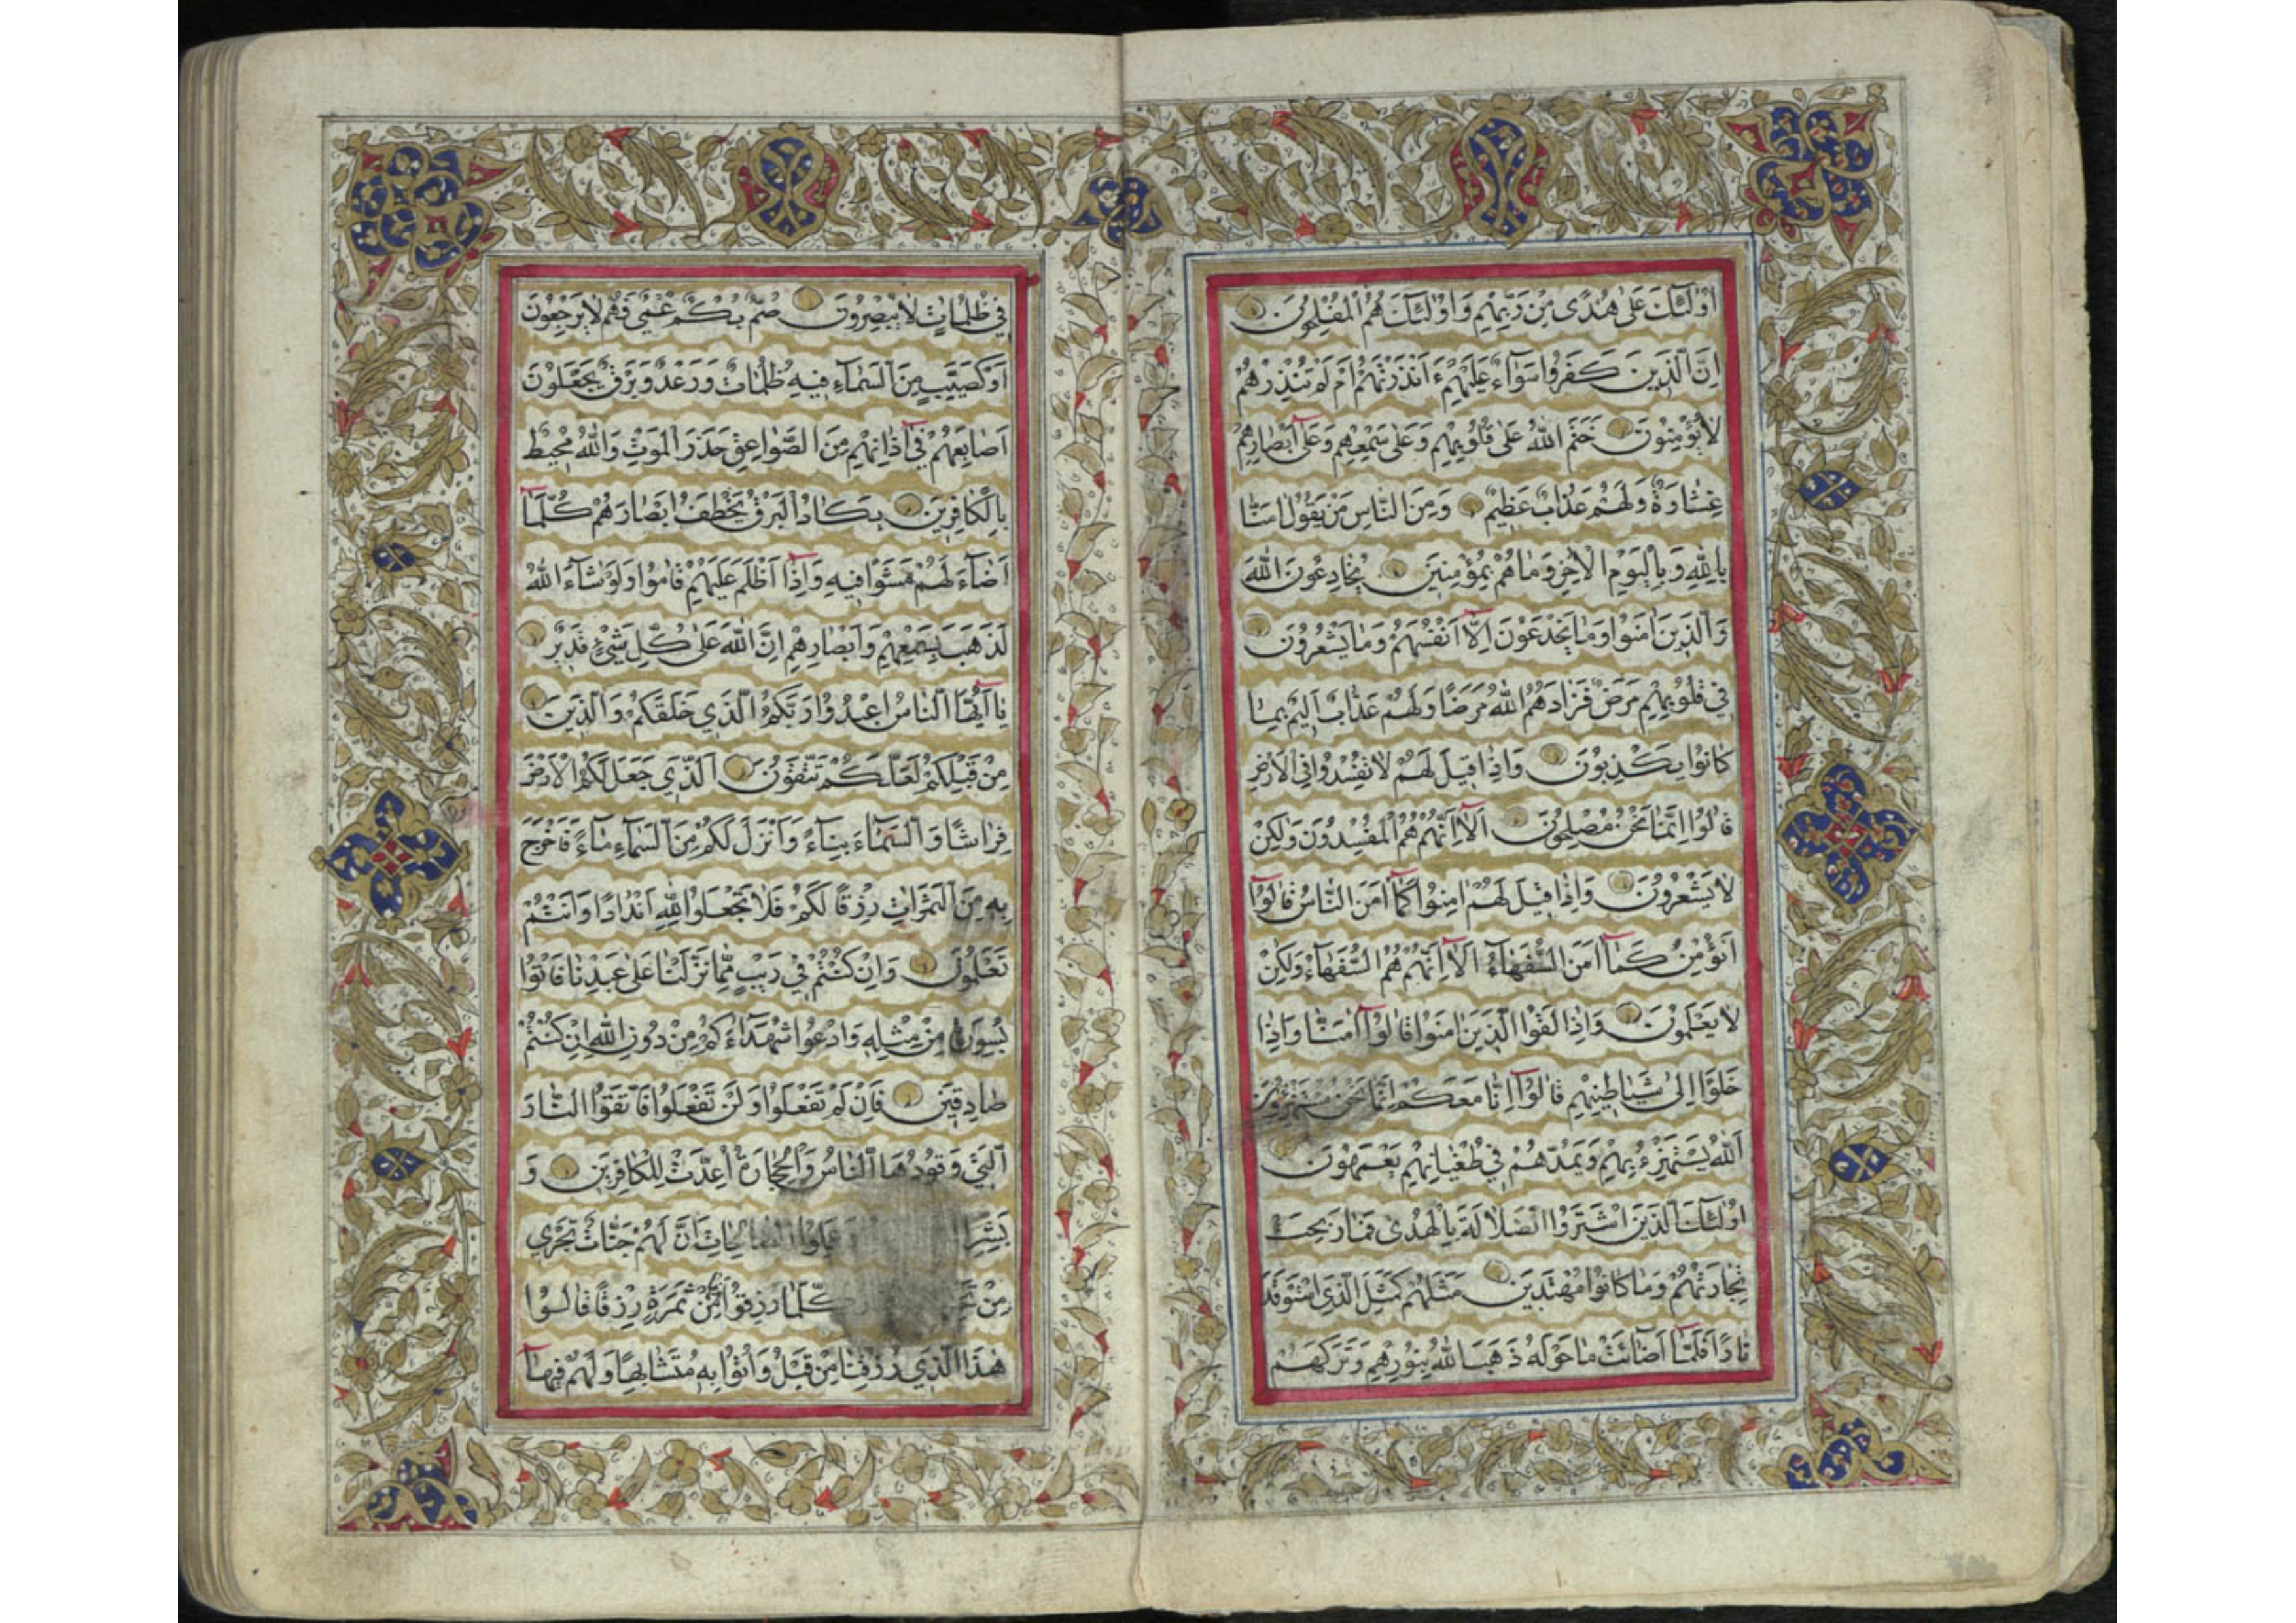 اُولٰئِكَ عَلٰى هُدًى مِنْ رَبِّهِمْ وَاُولٰئِكَ هُمُ الْمُفْلِحُونَ
اِنَّ الَّذِينَ كَفَرُوا سَوَآءٌ عَلَيْهِمْ ءَاَنْذَرْتَهُمْ اَمْ لَمْ تُنْذِرْهُمْ
لَا يُؤْمِنُونَ خَتَمَ اللّٰهُ عَلٰى قُلُوبِهِمْ وَعَلٰى سَمْعِهِمْ وَعَلٰٓى اَبْصَارِهِمْ
غِشَاوَةٌ وَلَهُمْ عَذَابٌ عَظِيمٌ وَمِنَ النَّاسِ مَنْ يَقُولُ اٰمَنَّا
بِاللّٰهِ وَبِالْيَوْمِ الْاٰخِرِ وَمَا هُمْ بِمُؤْمِنِينَ يُخَادِعُونَ اللّٰهَ
وَالَّذِينَ اٰمَنُوا وَمَا يَخْدَعُونَ اِلَّآ اَنْفُسَهُمْ وَمَا يَشْعُرُونَ
فِي قُلُوبِهِمْ مَرَضٌ فَزَادَهُمُ اللّٰهُ مَرَضًا وَلَهُمْ عَذَابٌ اَلِيمٌ بِمَا
كَانُوا يَكْذِبُونَ وَاِذَا قِيلَ لَهُمْ لَا تُفْسِدُوا فِي الْاَرْضِ
قَالُوا اِنَّمَا نَحْنُ مُصْلِحُونَ اَلَآ اِنَّهُمْ هُمُ الْمُفْسِدُونَ وَلٰكِنْ
لَا يَشْعُرُونَ وَاِذَا قِيلَ لَهُمْ اٰمِنُوا كَمَآ اٰمَنَ النَّاسُ قَالُوٓا
اَنُؤْمِنُ كَمَآ اٰمَنَ السُّفَهَآءُ اَلَآ اِنَّهُمْ هُمُ السُّفَهَآءُ وَلٰكِنْ
لَا يَعْلَمُونَ وَاِذَا لَقُوا الَّذِينَ اٰمَنُوا قَالُوٓا اٰمَنَّا وَاِذَا
خَلَوْا اِلٰى شَيَاطِينِهِمْ قَالُوٓا اِنَّا مَعَكُمْ اِنَّمَا نَحْنُ مُسْتَهْزِؤُنَ
اَللّٰهُ يَسْتَهْزِئُ بِهِمْ وَيَمُدُّهُمْ فِي طُغْيَانِهِمْ يَعْمَهُونَ
اُولٰئِكَ الَّذِينَ اشْتَرَوُا الضَّلَالَةَ بِالْهُدٰى فَمَا رَبِحَتْ
تِجَارَتُهُمْ وَمَا كَانُوا مُهْتَدِينَ مَثَلُهُمْ كَمَثَلِ الَّذِي اسْتَوْقَدَ
نَارًا فَلَمَّآ اَضَآئَتْ مَا حَوْلَهُ ذَهَبَ اللّٰهُ بِنُورِهِمْ وَتَرَكَهُمْ
فِي ظُلُمَاتٍ لَا يُبْصِرُونَ صُمٌّ بُكْمٌ عُمْيٌ فَهُمْ لَا يَرْجِعُونَ
اَوْ كَصَيِّبٍ مِنَ السَّمَآءِ فِيهِ ظُلُمَاتٌ وَرَعْدٌ وَبَرْقٌ يَجْعَلُونَ
اَصَابِعَهُمْ فِيٓ اٰذَانِهِمْ مِنَ الصَّوَاعِقِ حَذَرَ الْمَوْتِ وَاللّٰهُ مُحِيطٌ
بِالْكَافِرِينَ يَكَادُ الْبَرْقُ يَخْطَفُ اَبْصَارَهُمْ كُلَّمَآ
اَضَآءَ لَهُمْ مَشَوْا فِيهِ وَاِذَآ اَظْلَمَ عَلَيْهِمْ قَامُوا وَلَوْ شَآءَ اللّٰهُ
لَذَهَبَ بِسَمْعِهِمْ وَاَبْصَارِهِمْ اِنَّ اللّٰهَ عَلٰى كُلِّ شَيْءٍ قَدِيرٌ
يَآ اَيُّهَا النَّاسُ اعْبُدُوا رَبَّكُمُ الَّذِي خَلَقَكُمْ وَالَّذِينَ
مِنْ قَبْلِكُمْ لَعَلَّكُمْ تَتَّقُونَ اَلَّذِي جَعَلَ لَكُمُ الْاَرْضَ
فِرَاشًا وَالسَّمَآءَ بِنَآءً وَاَنْزَلَ لَكُمْ مِنَ السَّمَآءِ مَآءً فَاَخْرَجَ
بِهِ مِنَ الثَّمَرَاتِ رِزْقًا لَكُمْ فَلَا تَجْعَلُوا لِلّٰهِ اَنْدَادًا وَاَنْتُمْ
تَعْلَمُونَ وَاِنْ كُنْتُمْ فِي رَيْبٍ مِمَّا نَزَّلْنَا عَلٰى عَبْدِنَا فَاْتُوا
بِسُورَةٍ مِنْ مِثْلِهِ وَادْعُوا شُهَدَآءَكُمْ مِنْ دُونِ اللّٰهِ اِنْ كُنْتُمْ
صَادِقِينَ فَاِنْ لَمْ تَفْعَلُوا وَلَنْ تَفْعَلُوا فَاتَّقُوا النَّارَ
الَّتِي وَقُودُهَا النَّاسُ وَالْحِجَارَةُ اُعِدَّتْ لِلْكَافِرِينَ وَ
بَشِّرِ وَعَمِلُوا الصَّالِحَاتِ اَنَّ لَهُمْ جَنَّاتٍ تَجْرِي
مِنْ كُلَّمَا رُزِقُوا مِنْهَا مِنْ ثَمَرَةٍ رِزْقًا قَالُوا
هٰذَا الَّذِي رُزِقْنَا مِنْ قَبْلُ وَاُتُوا بِهِ مُتَشَابِهًا وَلَهُمْ فِيهَآ